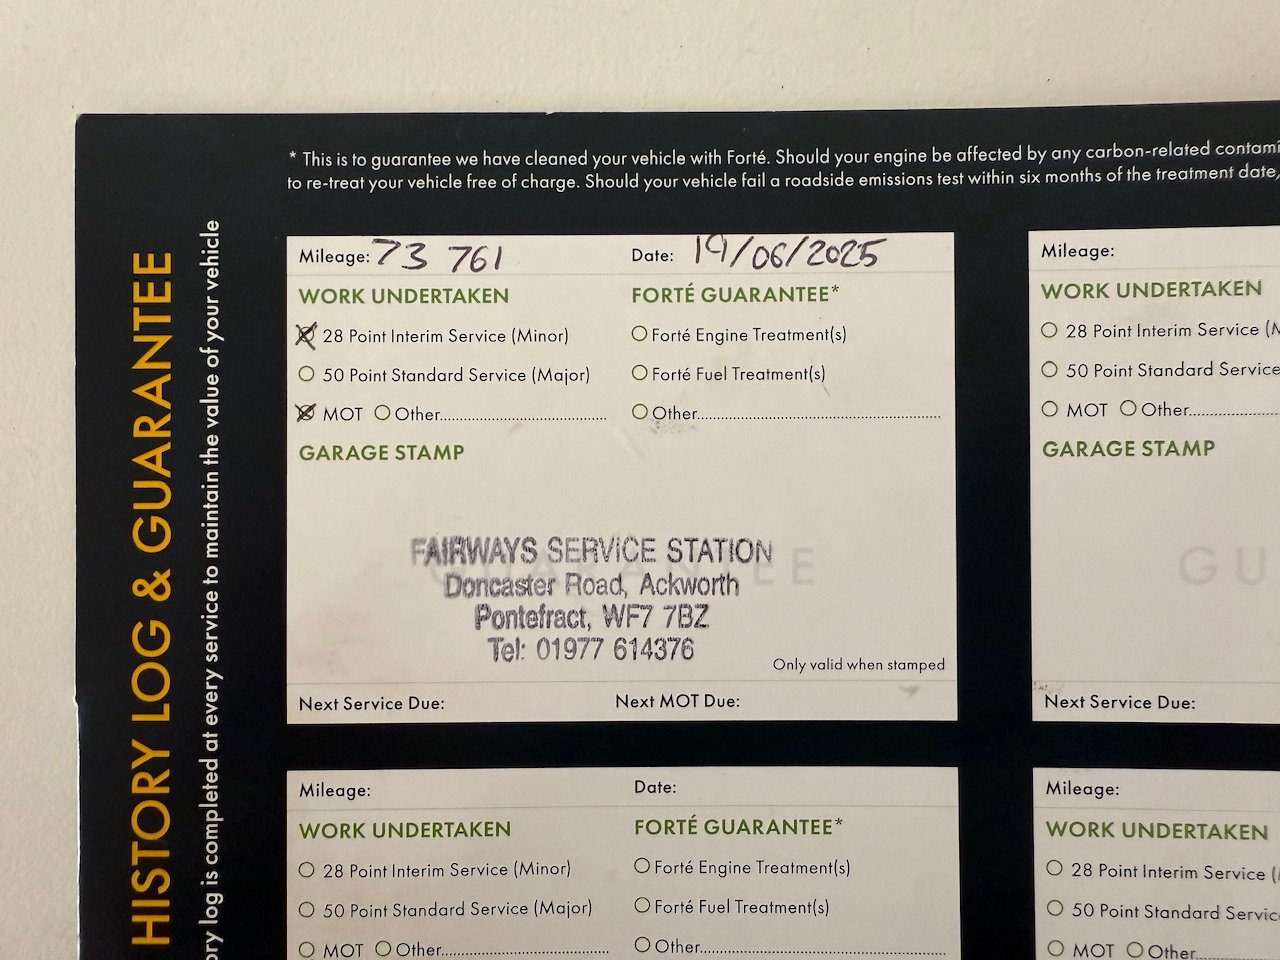 * This is to guarantee we have cleaned your vehicle with Forté. Should your engine be affected by any carbon-related
to re-treat your vehicle free of charge. Should your vehicle fail a roadside emissions test within six months of the treatment date,
HISTORY LOG & GUARANTEE
log is completed at every service to maintain the value of your vehicle
Mileage: 73 761 Date: 19/06/2025
WORK UNDERTAKEN FORTÉ GUARANTEE*
28 Point Interim Service (Minor) Forté Engine Treatment(s)
50 Point Standard Service (Major) Forté Fuel Treatment(s)
MOT Other Other
GARAGE STAMP
GUARANTEE
FAIRWAYS SERVICE STATION
Doncaster Road, Ackworth
Pontefract, WF7 7BZ
Tel: 01977 614376
Only valid when stamped
Next Service Due: Next MOT Due:
Mileage:
WORK UNDERTAKEN
28 Point Interim Service
50 Point Standard Service
MOT Other
GARAGE STAMP
GU
Next Service Due:
Mileage: Date:
WORK UNDERTAKEN FORTÉ GUARANTEE*
28 Point Interim Service (Minor) Forté Engine Treatment(s)
50 Point Standard Service (Major) Forté Fuel Treatment(s)
MOT Other Other
Mileage:
WORK UNDERTAKEN
28 Point Interim Service
50 Point Standard
MOT Other